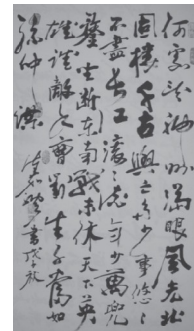 何處望神州滿眼風光北
固樓千古興亡多少事悠々
不盡長江滚々流年少萬兜
鍪坐斷東南戰未休天下英
雄誰敵手曹劉生子當如
孫仲謀
書戊子秋